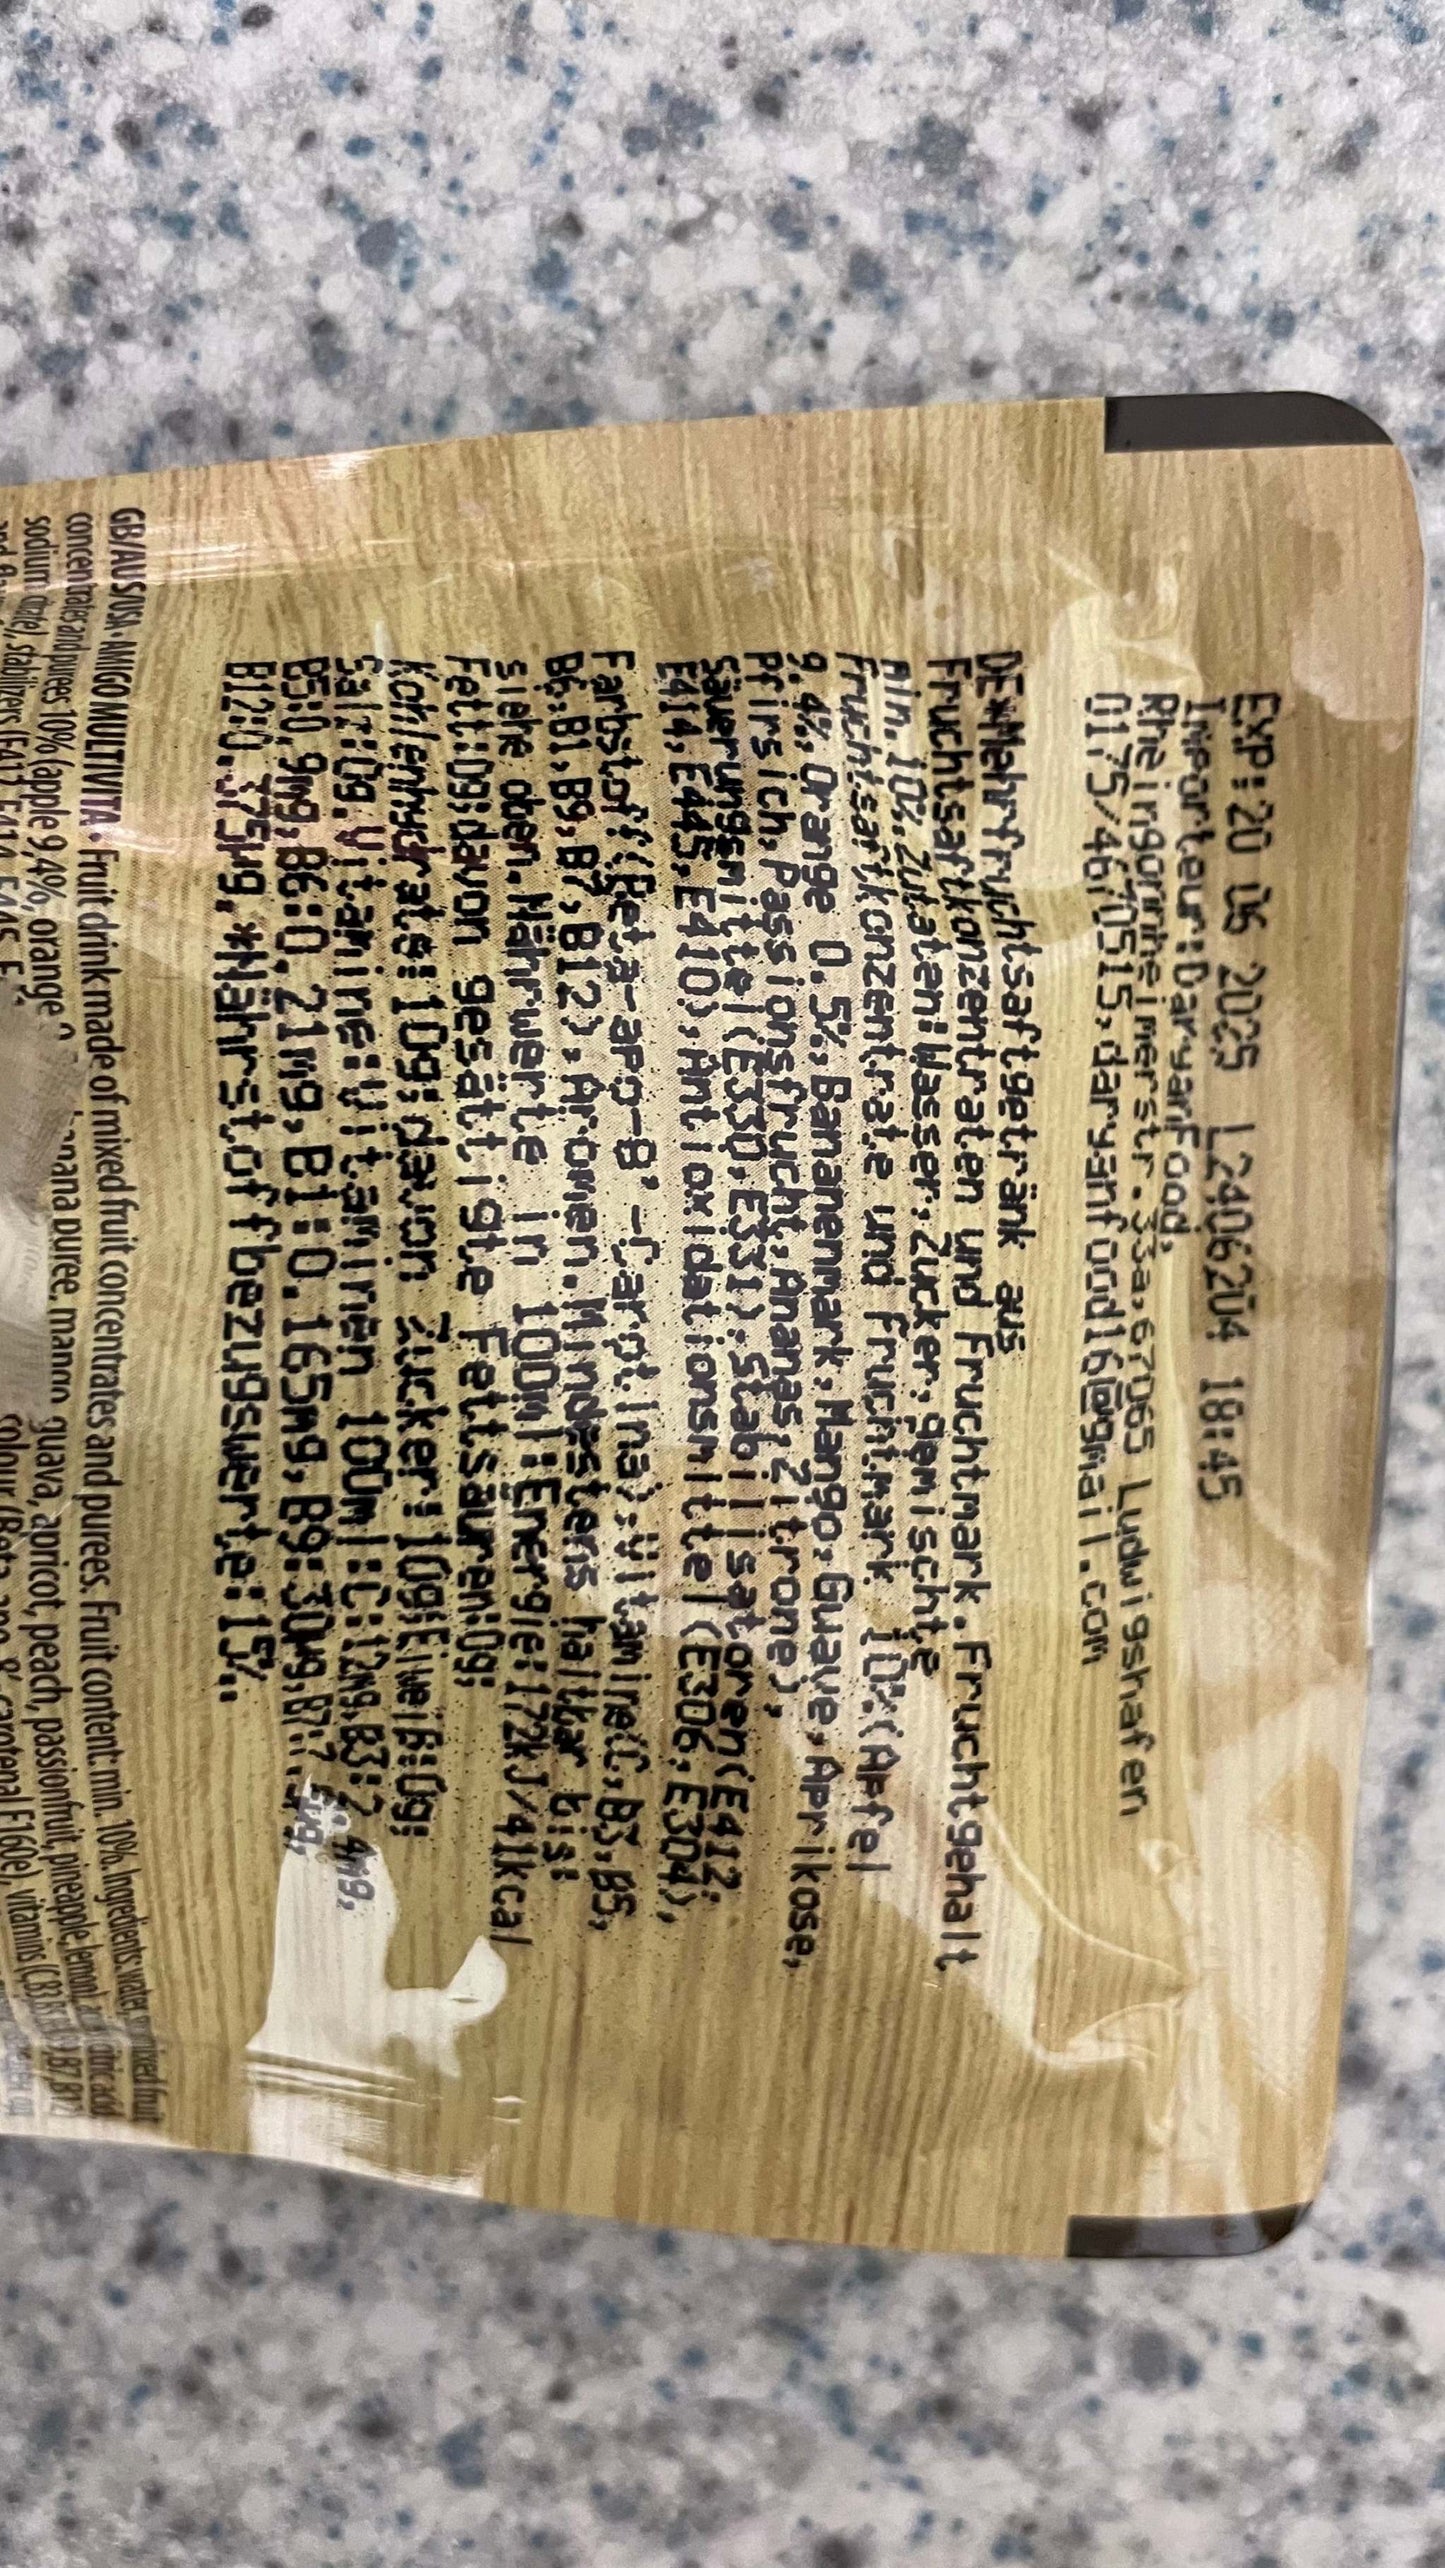 EXP:20 06 2025 L2406204 18:45
Importeur:DaryanFood,
Rheingönnheimerstr.33a,67065 Ludwigshafen
0175/4670515,daryanfood16@gmail.com
DE*Mehrfruchtsaftgetränk aus
Fruchtsaftkonzentraten und Fruchtmark.Fruchtgehalt
min.10%.Zutaten:Wasser,Zucker,gemischte
Fruchtsaftkonzentrate und Fruchtmark 10%(Apfel
9.4%,Orange 0.5%,Bananenmark,Mango,Guave,Aprikose,
Pfirsich,Passionsfrucht,Ananas,Zitrone),
Säuerungsmittel(E330,E331),Stabilisatoren(E412,
E414,E445,E410),Antioxidationsmittel(E306,E304),
Farbstoff(Beta-apo-8'-Carotinal),Vitamine(C,B3,B5,
B6,B1,B9,B7,B12),Aromen.Mindestens haltbar bis:
siehe oben.Nährwerte in 100ml:Energie:172kJ/41kcal
Fett:0g;davon gesättigte Fettsäuren:0g;
Kohlenhydrate:10g;davon Zucker:10g;Eiweiß:0g;
Salz:0g.Vitamine:Vitaminen 100ml:C:12mg,B3:2.4mg,
B5:0.9mg,B6:0.21mg,B1:0.165mg,B9:30µg,B7:7.5µg,
B12:0.375µg,*Nährstoffbezugswerte:15%.
GB/AUS/USA • AMIGO MULTIVITA • Fruit drink made of mixed fruit concentrates and purees. Fruit content: min. 10%. Ingredients: water, mixed fruit
concentrates and purees 10% (apple 9,4%, orange banana puree, mango, guava, apricot, peach, passionfruit, pineapple, lemon), citric acid
sodium citrate), stabilizers (E412, E414, E445, colour (Beta-apo-8'-carotenal E160e), vitamins (C,B3,B5 B7,B12)